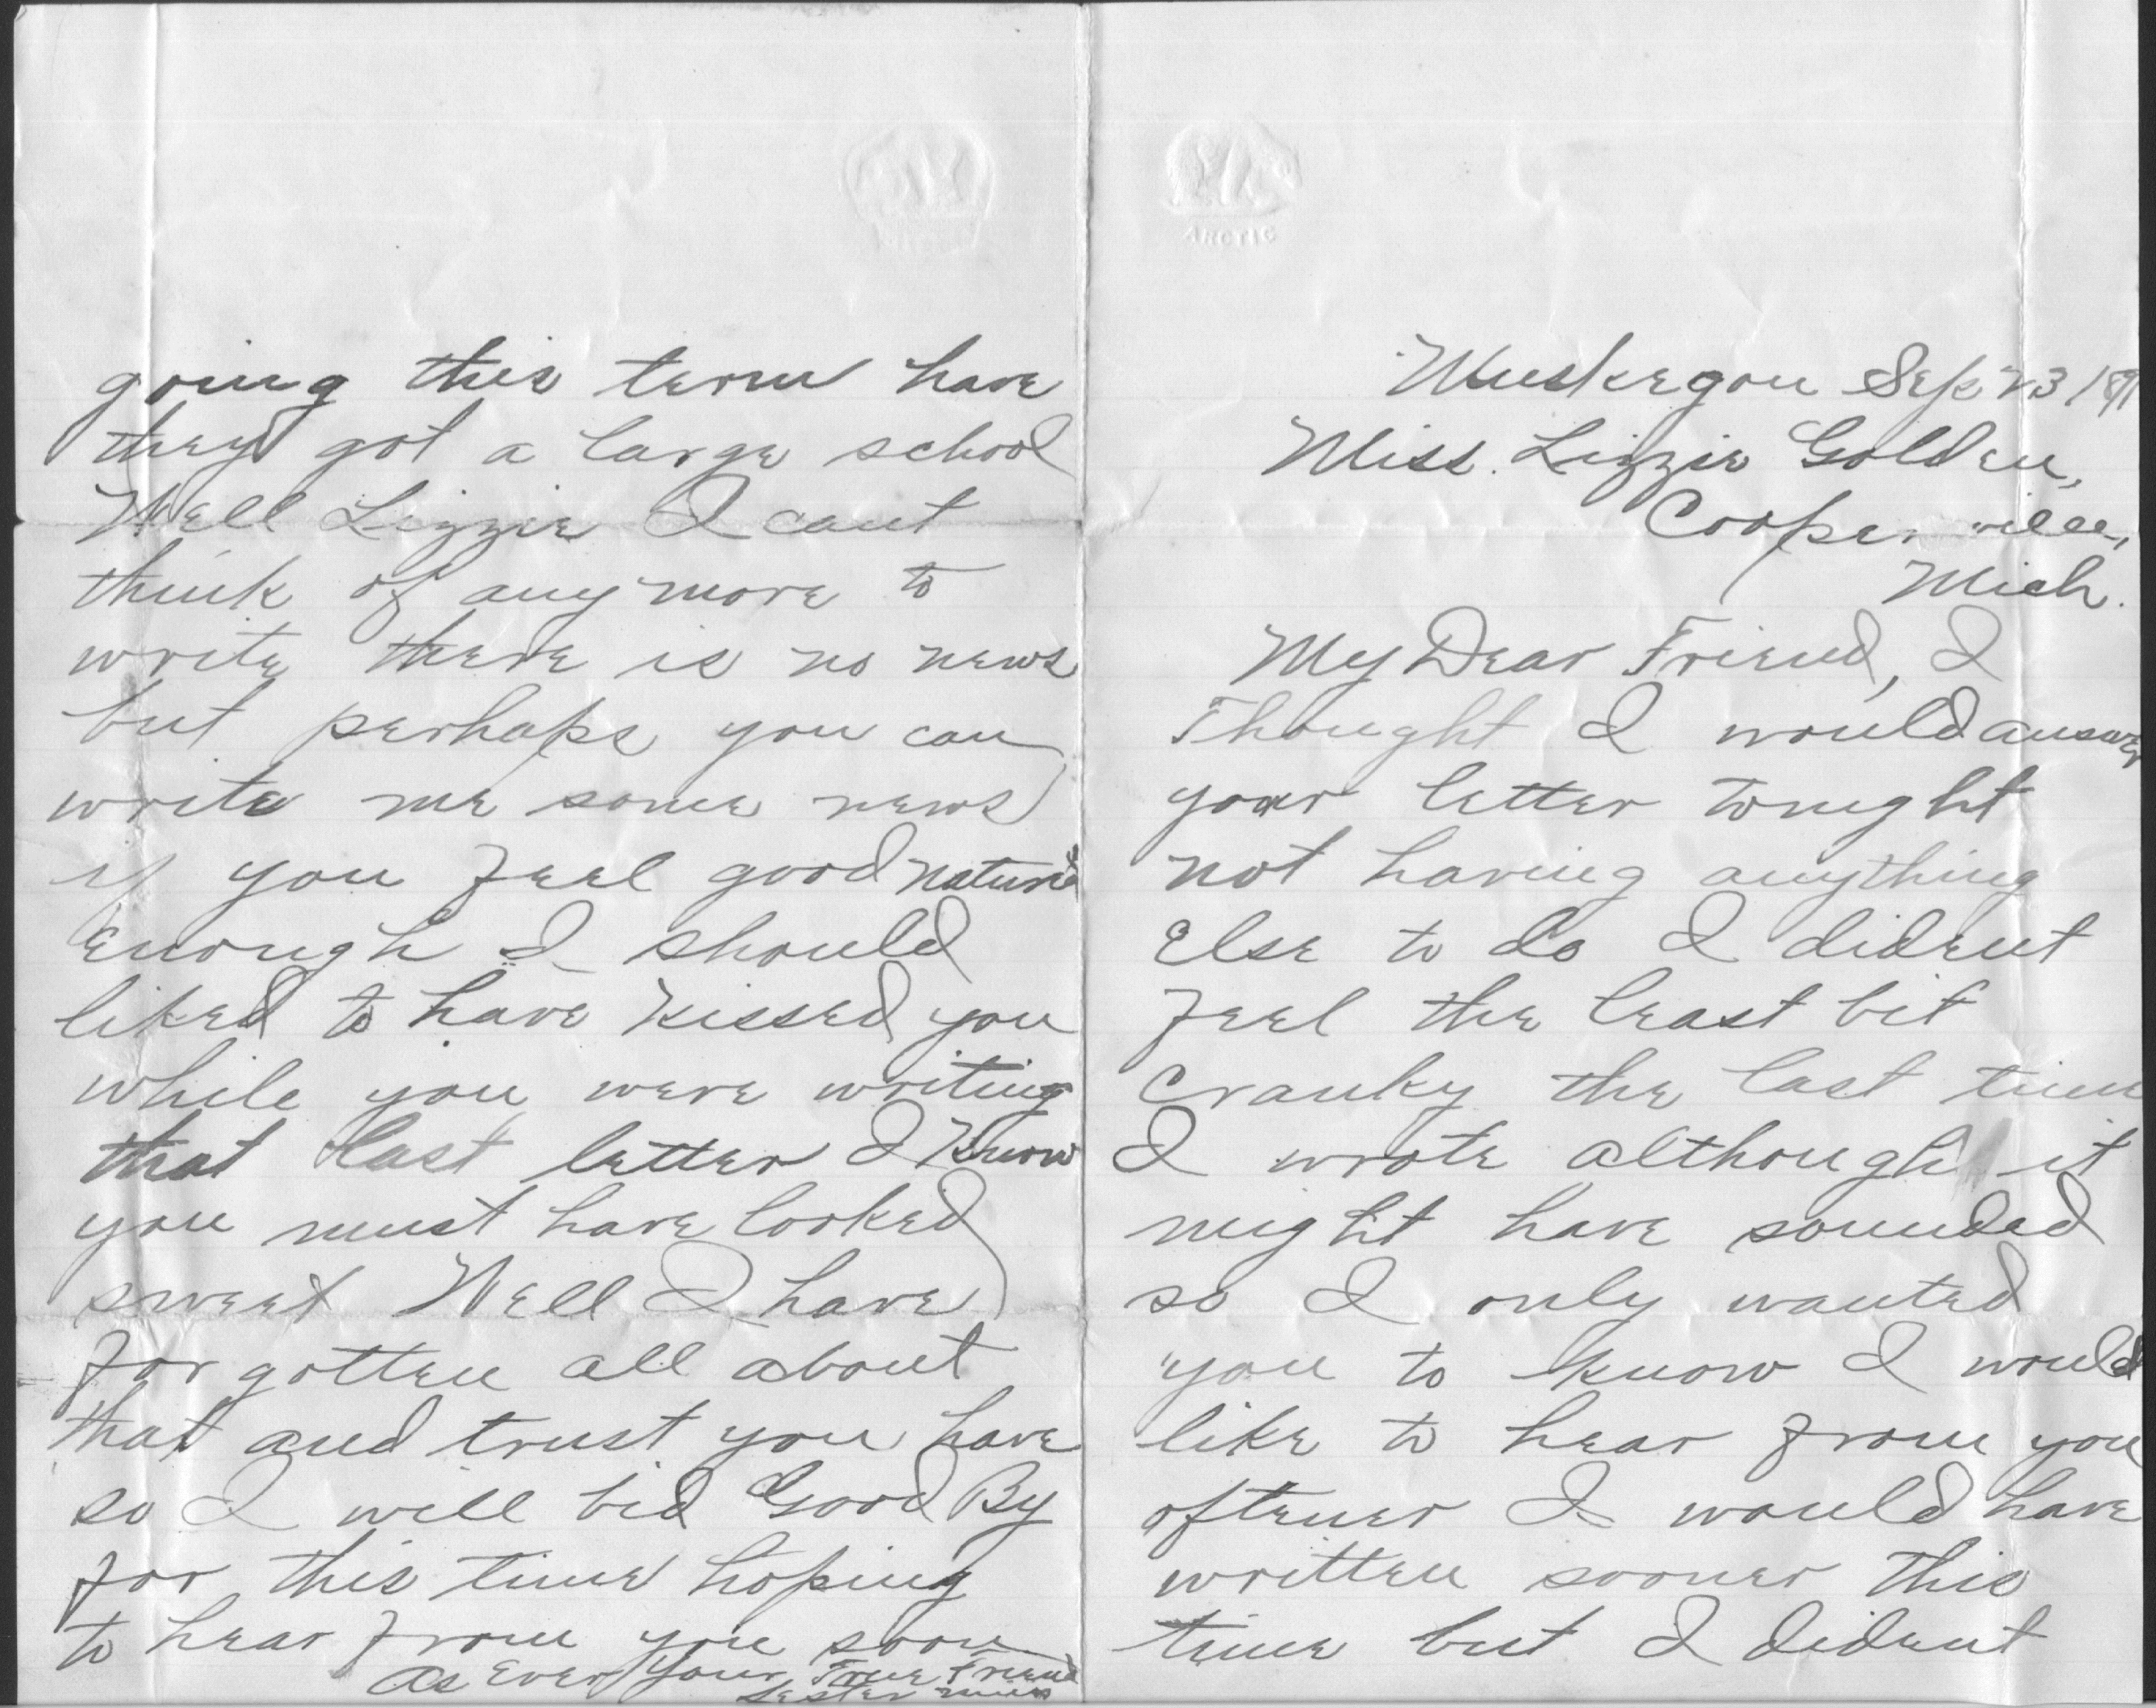 ARCTIC
Muskegon Sep 23 1891
Miss. Lizzie Golden,
Cooperville,
Mich.
My Dear Friend, I
Thought I would answer
your letter tonight
not having anything
Else to do I dident
feel the least bit
Cranky the last time
I wrote although it
might have sounded
so I only wanted
you to know I would
like to hear from you
oftener I would have
written sooner this
time but I dident
going this term have
they got a large school
Well Lizzie I cant
think of any more to
write there is no news
but perhaps you can
write me some news
if you feel good natured
Enough I should
liked to have Kissed you
while you were writing
that last letter I Know
you must have looked
sweet Well I have
forgotten all about
that and trust you have
so I will bid Good By
for this time hoping
to hear from you soon
As Ever Your True Friend
Lester